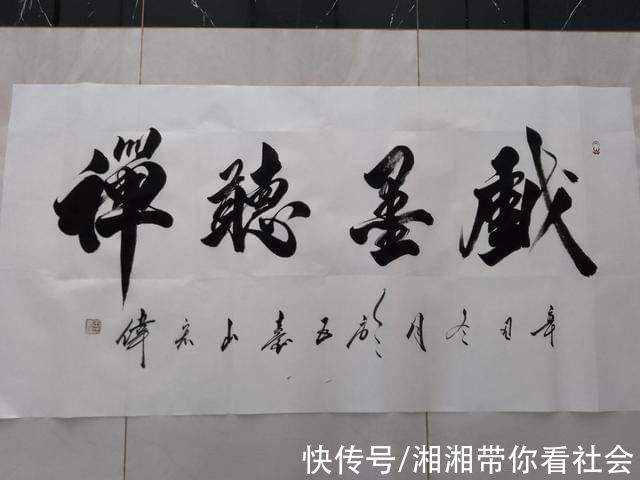 戲墨聽禪
辛丑冬月於五臺山宏偉
快传号/湘湘带你看社会